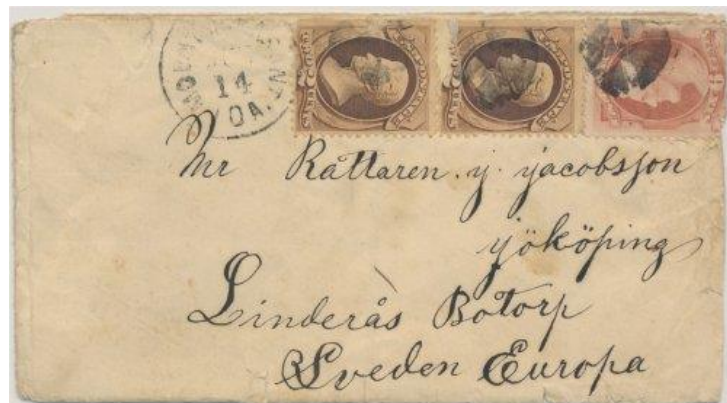 14
OA.
Mr Råttaren. y. yacobsson
yököping
Linderås Botorp
Sveden Europa